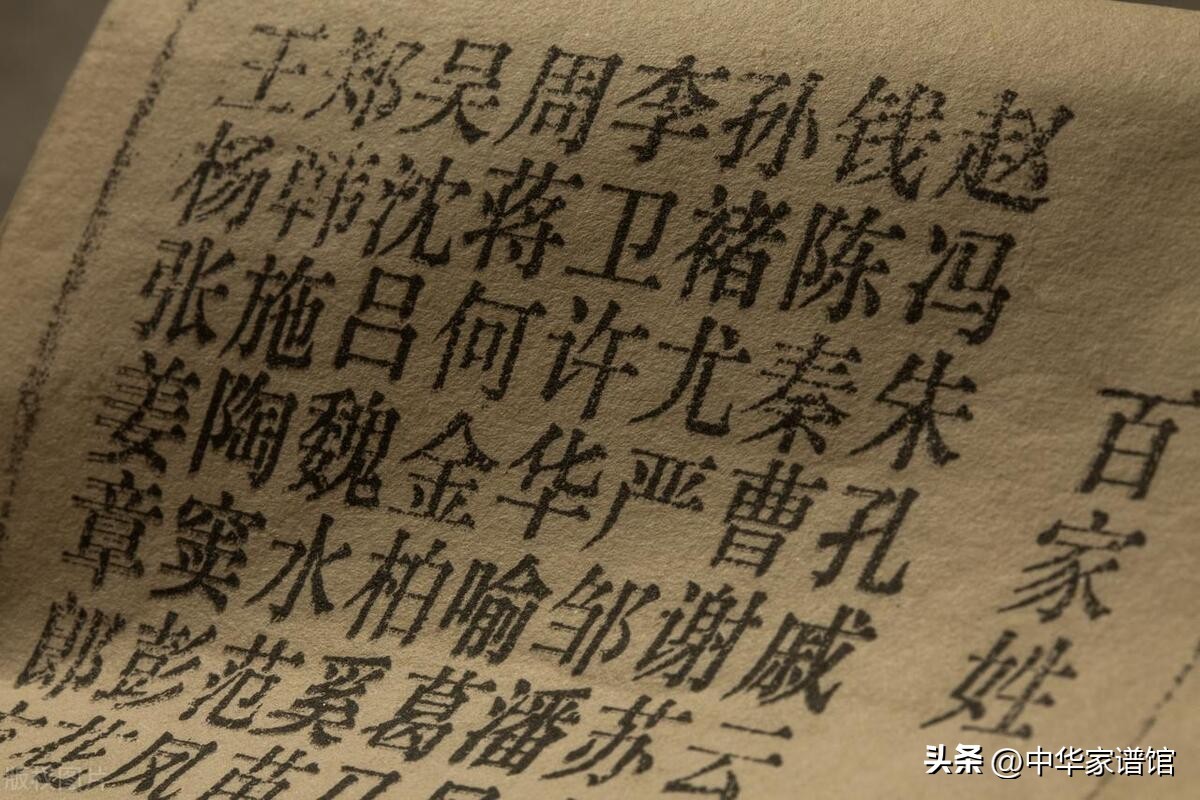 百家姓
赵钱孙李周吴郑王
冯陈褚卫蒋沈韩杨
朱秦尤许何吕施张
孔曹严华金魏陶姜
戚谢邹喻柏水窦章
云苏潘葛奚范彭郎
苗凤花
版权图片
头条 @中华家谱馆